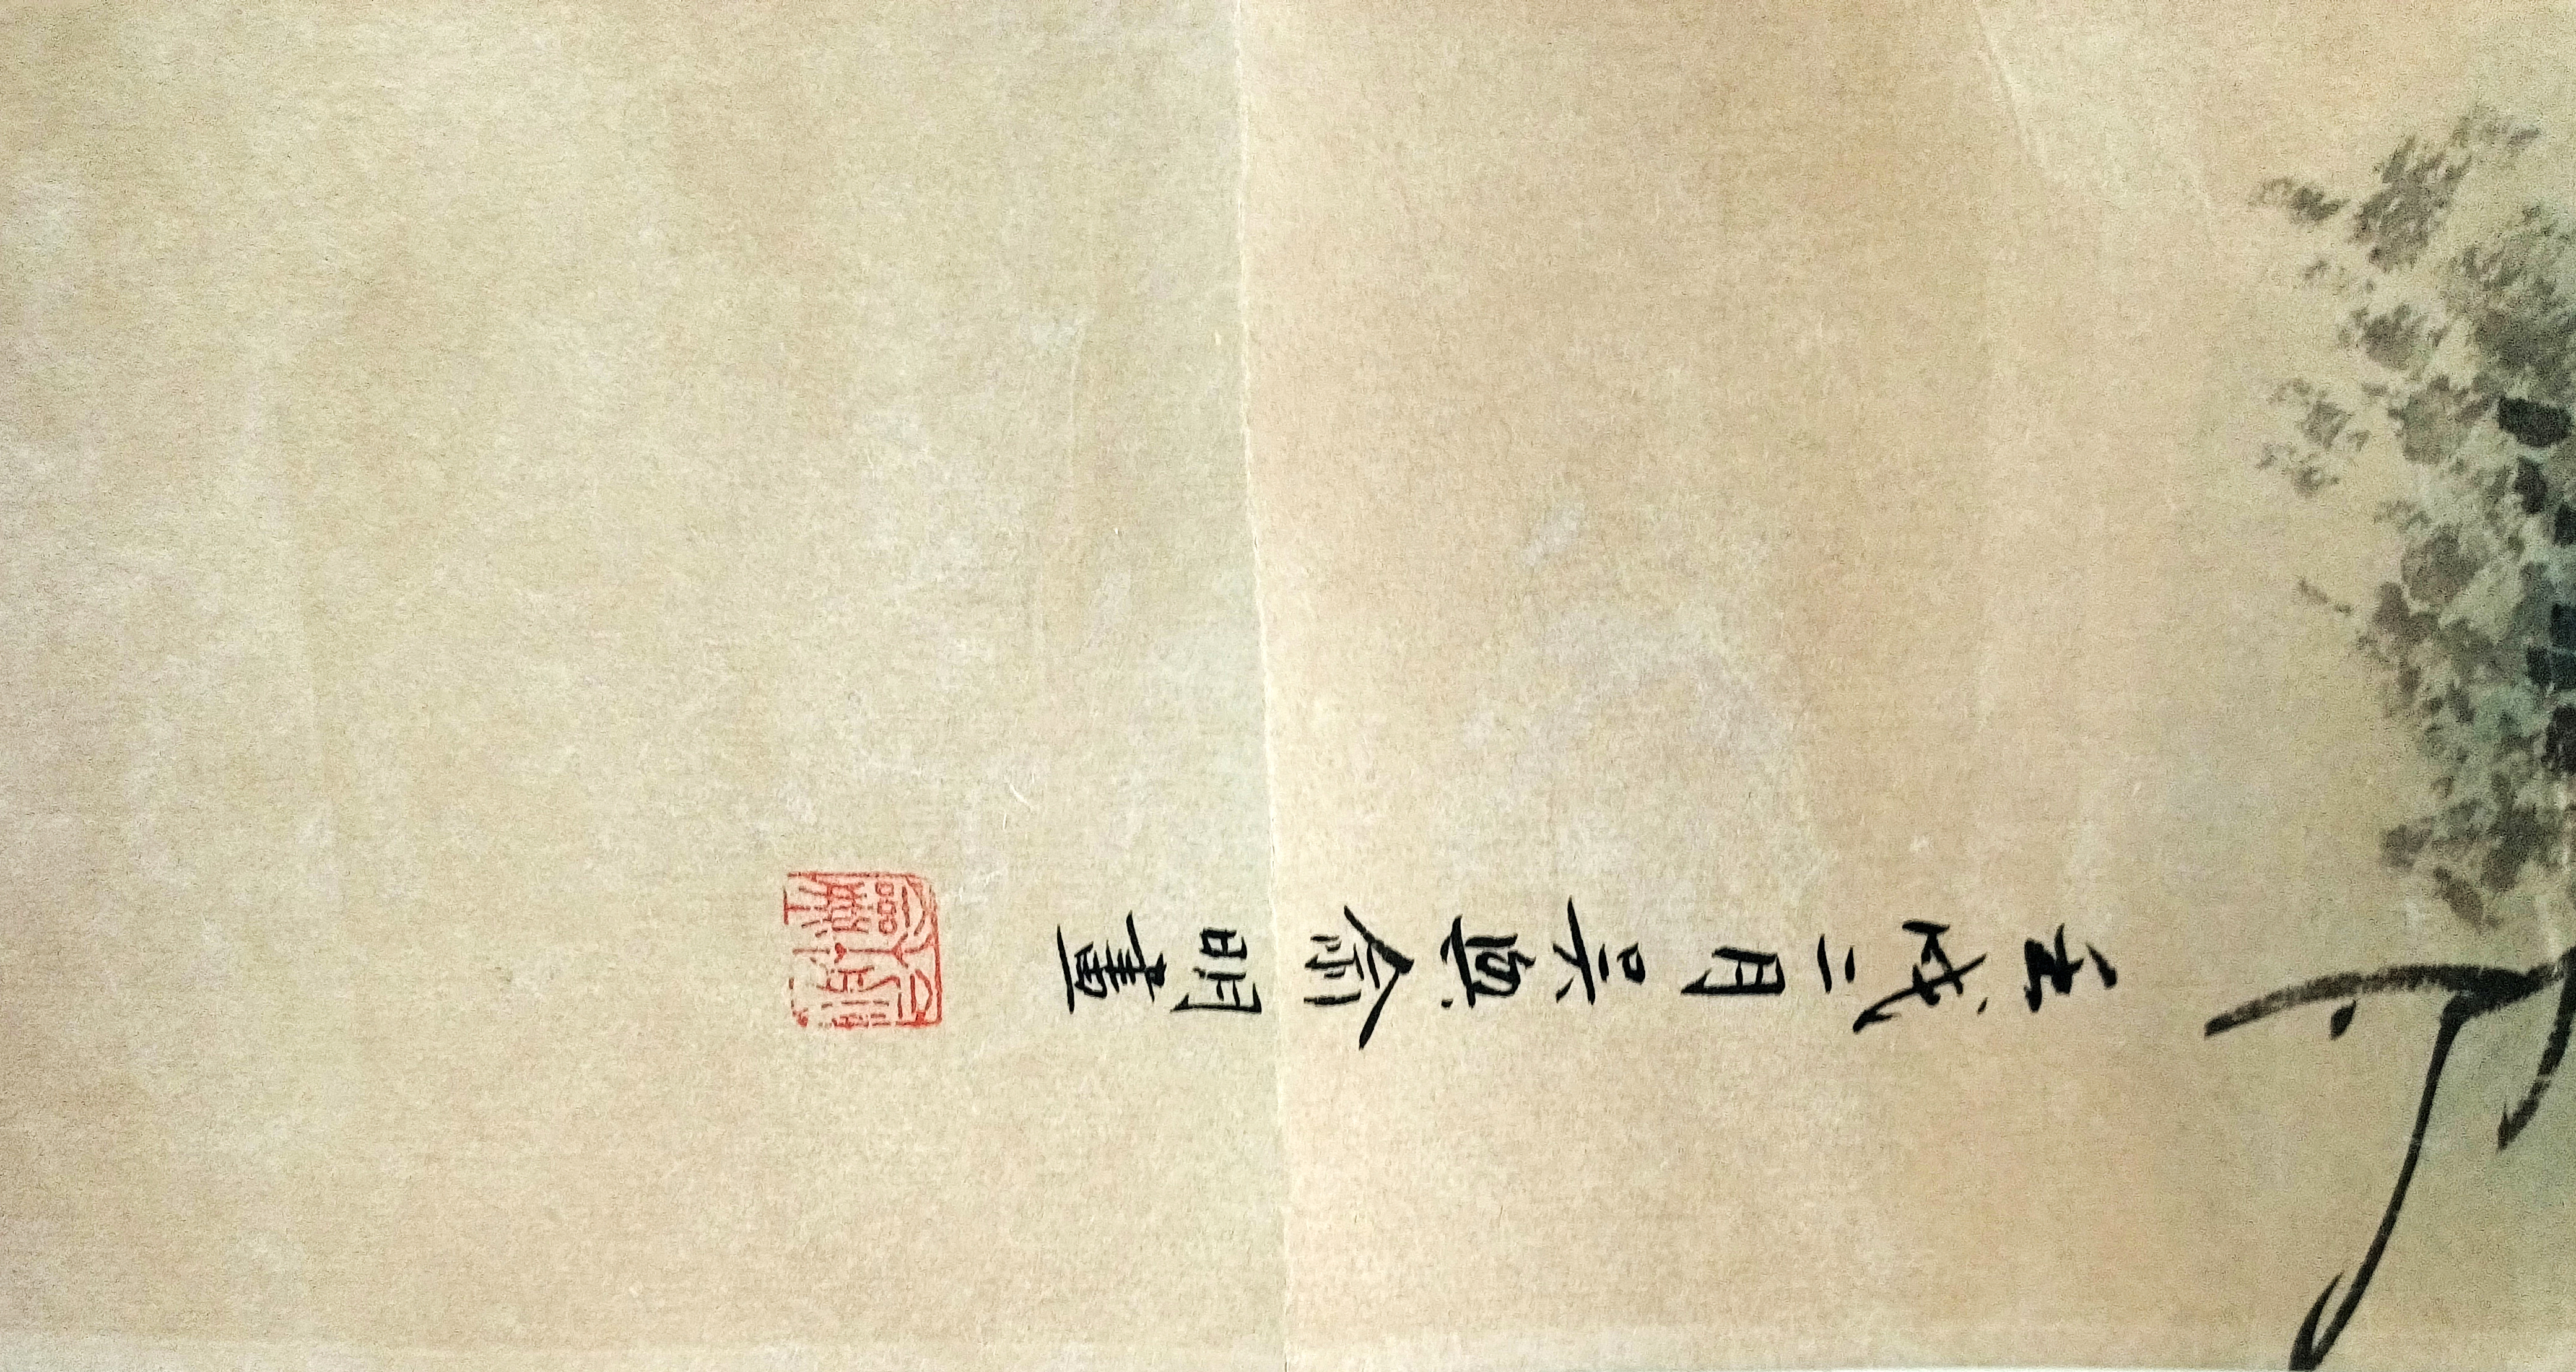 壬戌二月吳興俞明畫